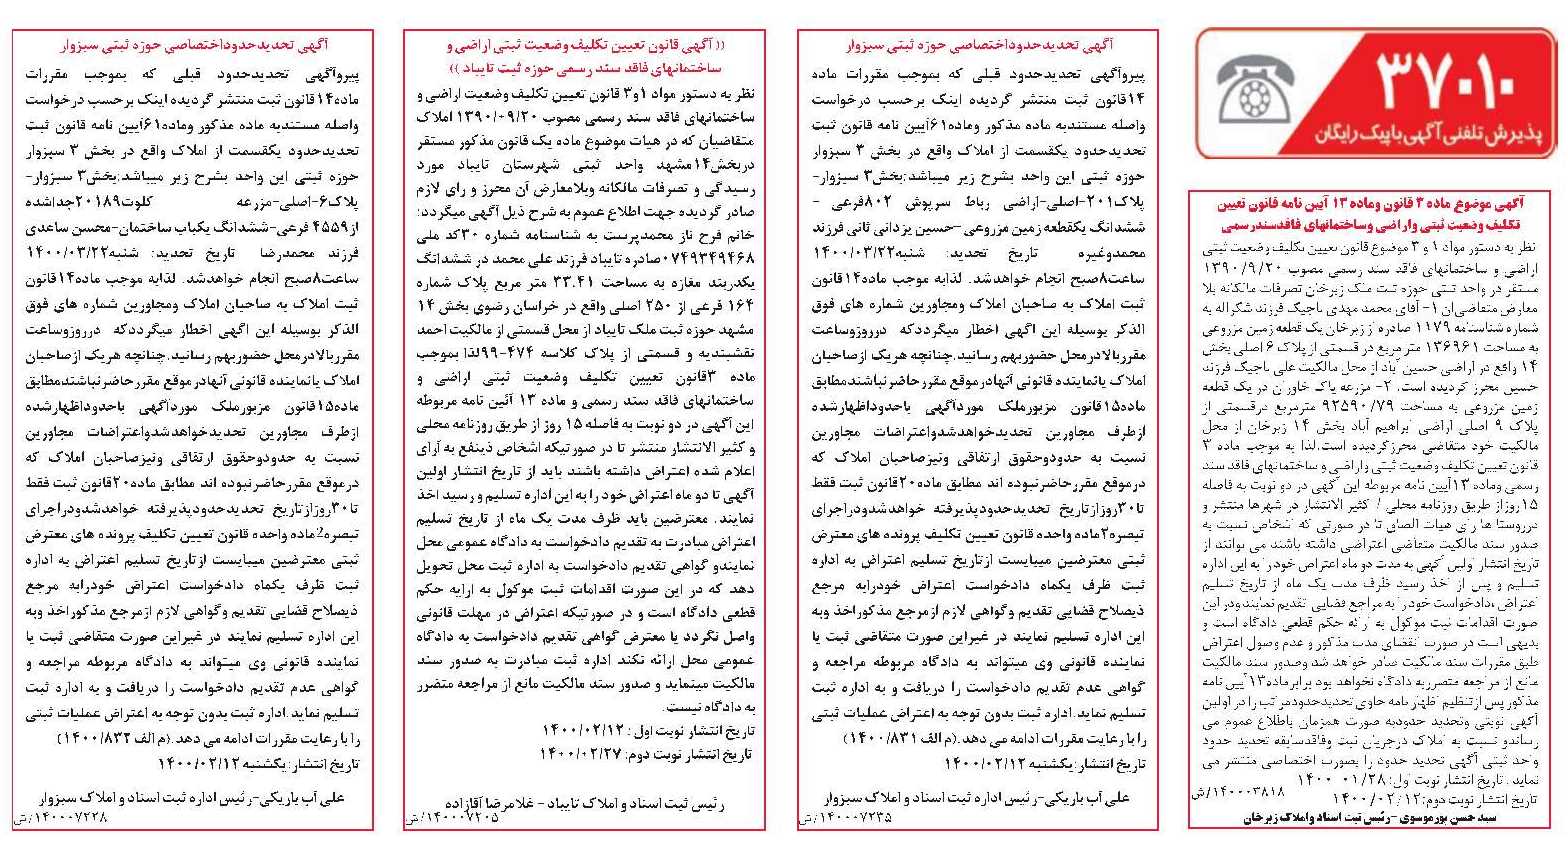 ۳۷۰۱۰
پذیرش تلفنی آگهی با پیک رایگان
آگهی موضوع ماده ۳ قانون وماده ۱۳ آیین نامه قانون تعیین
تکلیف وضعیت ثبتی واراضی وساختمانهای فاقدسندرسمی
نظر به دستور مواد ۱ و ۳ موضوع قانون تعیین تکلیف وضعیت ثبتی
اراضی و ساختمانهای فاقد سند رسمی مصوب ۱۳۹۰/۹/۲۰
مستقر در واحد ثبتی حوزه ثبت ملک زبرخان تصرفات مالکانه بلا
معارض متقاضیان ۱- آقای محمد مهدی تاجیک فرزند شکراله به
شماره شناسنامه ۱۱۷۹ صادره از زبرخان یک قطعه زمین مزروعی
به مساحت ۱۳۶۹۶۱ متر مربع در قسمتی از پلاک ۶ اصلی بخش
۱۴ واقع در اراضی حسین آباد از محل مالکیت علی تاجیک فرزند
حسین محرز گردیده است. ۲- مزرعه پاک خاوران در یک قطعه
زمین مزروعی به مساحت ۹۲۵۹۰/۷۹ مترمربع درقسمتی از
پلاک ۹ اصلی اراضی ابراهیم آباد بخش ۱۴ زبرخان از محل
مالکیت خود متقاضی محرزگردیده است.لذا به موجب ماده ۳
قانون تعیین تکلیف وضعیت ثبتی واراضی و ساختمانهای فاقد سند
رسمی وماده ۱۳آیین نامه مربوطه این آگهی در دو نوبت به فاصله
۱۵روزاز طریق روزنامه محلی / کثیر الانتشار در شهرها منتشر و
درروستا ها رای هیات الصاق تا در صورتی که اشخاص نسبت به
صدور سند مالکیت متقاضی اعتراضی داشته باشند می توانند از
تاریخ انتشار اولین آگهی به مدت دو ماه اعتراض خودرا به این اداره
تسلیم و پس از اخذ رسید ظرف مدت یک ماه از تاریخ تسلیم
اعتراض ،دادخواست خود را به مراجع قضایی تقدیم نمایندودر این
صورت اقدامات ثبت موکول به ارائه حکم قطعی دادگاه است و
بدیهی است در صورت انقضای مدت مذکور و عدم وصول اعتراض
طبق مقررات سند مالکیت صادر خواهد شد وصدور سند مالکیت
مانع از مراجعه متضرربه دادگاه نخواهد بود برابرماده۱۳آیین نامه
مذکور پس ازتنظیم اظهار نامه حاوی تحدیدحدودمراتب را در اولین
آگهی نوبتی وتحدید حدودبه صورت همزمان باطلاع عموم می
رساندو نسبت به املاک درجریان ثبت وفاقدسابقه تحدید حدود
واحد ثبتی آگهی تحدید حدود را بصورت اختصاصی منتشر می
نماید . تاریخ انتشار نوبت اول: ۱۴۰۰/۰۱/۲۸
تاریخ انتشار نوبت دوم: ۱۴۰۰/۰۲/۱۲ ۱۴۰۰۰۳۸۱۸/ش
سید حسن پورموسوی -رئیس ثبت اسناد واملاک زبرخان
آگهی تحدیدحدوداختصاصی حوزه ثبتی سبزوار
پیروآگهی تحدیدحدود قبلی که بموجب مقررات ماده
۱۴قانون ثبت منتشر گردیده اینک برحسب درخواست
واصله مستندبه ماده مذکور وماده۶۱آیین نامه قانون ثبت
تحدیدحدود یکقسمت از املاک واقع در بخش ۳ سبزوار
حوزه ثبتی این واحد بشرح زیر میباشد:بخش۳ سبزوار-
پلاک۲۰۱-اصلی-اراضی رباط سرپوش ۸۰۲فرعی -
ششدانگ یکقطعه زمین مزروعی –حسین یزدانی ثانی فرزند
محمدوغیره تاریخ تحدید: شنبه۱۴۰۰/۰۳/۲۲
ساعت۸صبح انجام خواهدشد. لذابه موجب ماده۱۴قانون
ثبت املاک به صاحبان املاک ومجاورین شماره های فوق
الذکر بوسیله این اگهی اخطار میگرددکه درروزوساعت
مقرربالادرمحل حضوربهم رسانید.چنانچه هریک ازصاحبان
املاک یانماینده قانونی آنهادرموقع مقررحاضرنباشندمطابق
ماده۱۵قانون مزبورملک موردآگهی باحدوداظهارشده
ازطرف مجاورین تحدیدخواهدشدواعتراضات مجاورین
نسبت به حدودوحقوق ارتفاقی ونیزصاحبان املاک که
درموقع مقررحاضرنبوده اند مطابق ماده۲۰قانون ثبت فقط
تا۳۰روزازتاریخ تحدیدحدودپذیرفته خواهدشدودراجرای
تبصره۲ماده واحده قانون تعیین تکلیف پرونده های معترض
ثبتی معترضین میبایست ازتاریخ تسلیم اعتراض به اداره
ثبت ظرف یکماه دادخواست اعتراض خودرابه مرجع
ذیصلاح قضایی تقدیم وگواهی لازم ازمرجع مذکوراخذ وبه
این اداره تسلیم نمایند در غیراین صورت متقاضی ثبت یا
نماینده قانونی وی میتواند به دادگاه مربوطه مراجعه و
گواهی عدم تقدیم دادخواست را دریافت و به اداره ثبت
تسلیم نماید.اداره ثبت بدون توجه به اعتراض عملیات ثبتی
را با رعایت مقررات ادامه می دهد.(م الف ۱۴۰۰/۸۳۱)
تاریخ انتشار:یکشنبه ۱۴۰۰/۰۲/۱۲
علی آب باریکی-رئیس اداره ثبت اسناد و املاک سبزوار
۱۴۰۰۰۷۲۳۵/ش
(( آگهی قانون تعیین تکلیف وضعیت ثبتی اراضی و
ساختمانهای فاقد سند رسمی حوزه ثبت تایباد ))
نظر به دستور مواد ۱و۳ قانون تعیین تکلیف وضعیت ثبتی اراضی و
ساختمانهای فاقد سند رسمی مصوب ۱۳۹۰/۰۹/۲۰ املاک
متقاضیان که در هیات موضوع ماده یک قانون مذکور مستقر
دربخش۱۴مشهد واحد ثبتی شهرستان تایباد مورد
رسیدگی و تصرفات مالکانه وبلامعارض آن محرز و رای لازم
صادر گردیده جهت اطلاع عموم به شرح ذیل آگهی میگردد:
خانم فرح ناز محمدپرست به شناسنامه شماره ۳۰کد ملی
۰۷۴۹۳۴۹۴۶۸صادره تایباد فرزند علی محمد در ششدانگ
یکدربند مغازه به مساحت ۳۳.۴۱ متر مربع پلاک شماره
۱۶۴ فرعی از ۲۵۰ اصلی واقع در خراسان رضوی بخش ۱۴
مشهد حوزه ثبت ملک تایباد از محل قسمتی از مالکیت احمد
نقشبندیه و قسمتی از پلاک کلاسه ۴۷۴-۹۹لذا بموجب
ماده ۳قانون تعیین تکلیف وضعیت ثبتی اراضی و
ساختمانهای فاقد سند رسمی و ماده ۱۳ آئین نامه مربوطه
این آگهی در دو نوبت به فاصله ۱۵ روز از طریق روزنامه محلی
و کثیر الانتشار منتشر تا در صورتیکه اشخاص ذینفع به آرای
اعلام شده اعتراض داشته باشند باید از تاریخ انتشار اولین
آگهی تا دو ماه اعتراض خود را به این اداره تسلیم و رسید اخذ
نمایند. معترضین باید ظرف مدت یک ماه از تاریخ تسلیم
اعتراض مبادرت به تقدیم دادخواست به دادگاه عمومی محل
نمایندو گواهی تقدیم دادخواست به اداره ثبت محل تحویل
دهد که در این صورت اقدامات ثبت موکول به ارایه حکم
قطعی دادگاه است و در صورتیکه اعتراض در مهلت قانونی
واصل نگردد یا معترض گواهی تقدیم دادخواست به دادگاه
عمومی محل ارائه نکند اداره ثبت مبادرت به صدور سند
مالکیت مینماید و صدور سند مالکیت مانع از مراجعه متضرر
به دادگاه نیست.
تاریخ انتشار نوبت اول : ۱۴۰۰/۰۲/۱۲
تاریخ انتشار نوبت دوم: ۱۴۰۰/۰۲/۲۷
رئیس ثبت اسناد و املاک تایباد - غلامرضا آقازاده
۱۴۰۰۰۷۲۰۵/ش
آگهی تحدیدحدوداختصاصی حوزه ثبتی سبزوار
پیروآگهی تحدیدحدود قبلی که بموجب مقررات
ماده۱۴قانون ثبت منتشر گردیده اینک برحسب درخواست
واصله مستندبه ماده مذکور وماده۶۱آیین نامه قانون ثبت
تحدیدحدود یکقسمت از املاک واقع در بخش ۳ سبزوار
حوزه ثبتی این واحد بشرح زیر میباشد:بخش۳ سبزوار-
پلاک۶-اصلی-مزرعه کلوت۲۰۱۸۹جداشده
از۴۵۵۹ فرعی-ششدانگ یکباب ساختمان-محسن ساعدی
فرزند محمدرضا تاریخ تحدید: شنبه۱۴۰۰/۰۳/۲۲
ساعت۸صبح انجام خواهدشد. لذابه موجب ماده۱۴قانون
ثبت املاک به صاحبان املاک ومجاورین شماره های فوق
الذکر بوسیله این اگهی اخطار میگرددکه درروزوساعت
مقرربالادرمحل حضوربهم رسانید.چنانچه هریک ازصاحبان
املاک یانماینده قانونی آنهادرموقع مقررحاضرنباشندمطابق
ماده۱۵قانون مزبورملک موردآگهی باحدوداظهارشده
ازطرف مجاورین تحدیدخواهدشدواعتراضات مجاورین
نسبت به حدودوحقوق ارتفاقی ونیزصاحبان املاک که
درموقع مقررحاضرنبوده اند مطابق ماده۲۰قانون ثبت فقط
تا۳۰روزازتاریخ تحدیدحدودپذیرفته خواهدشدودراجرای
تبصره2ماده واحده قانون تعیین تکلیف پرونده های معترض
ثبتی معترضین میبایست ازتاریخ تسلیم اعتراض به اداره
ثبت ظرف یکماه دادخواست اعتراض خودرابه مرجع
ذیصلاح قضایی تقدیم وگواهی لازم ازمرجع مذکوراخذ وبه
این اداره تسلیم نمایند در غیراین صورت متقاضی ثبت یا
نماینده قانونی وی میتواند به دادگاه مربوطه مراجعه و
گواهی عدم تقدیم دادخواست را دریافت و به اداره ثبت
تسلیم نماید.اداره ثبت بدون توجه به اعتراض عملیات ثبتی
را با رعایت مقررات ادامه می دهد.(م الف ۱۴۰۰/۸۳۲)
تاریخ انتشار:یکشنبه ۱۴۰۰/۰۲/۱۲
علی آب باریکی-رئیس اداره ثبت اسناد و املاک سبزوار
۱۴۰۰۰۷۲۲۸/ش